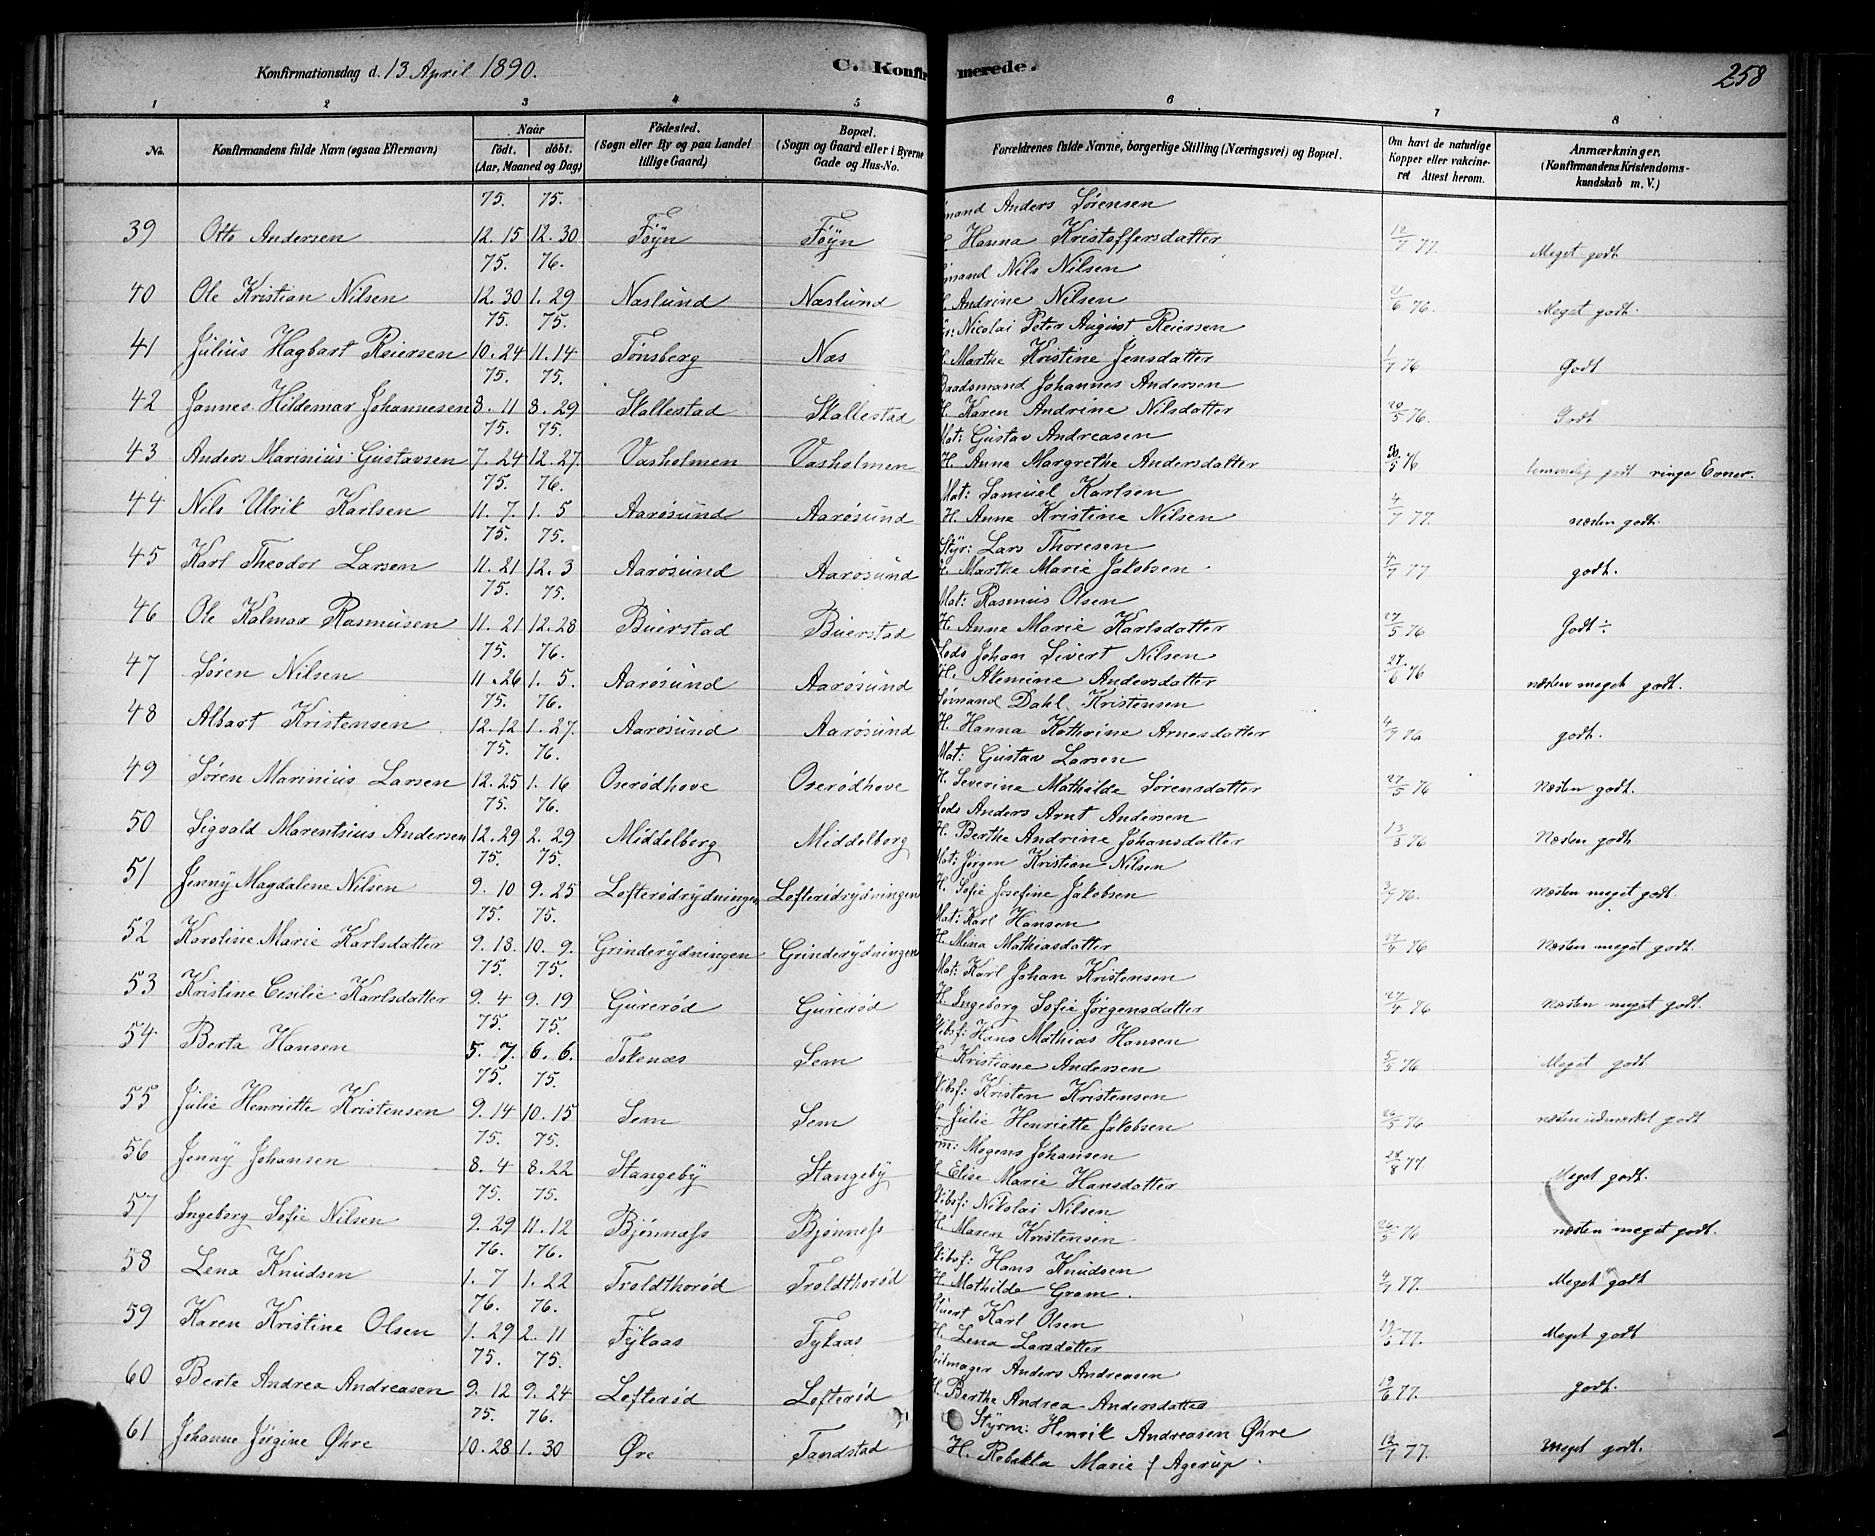 Konfirmationsdag d. 13 April 1890.
C. Konfirmerede.
258
1 2 3 4 5 6 7 8
No. Konfirmandens fulde Navn (ogsaa Efternavn) Naar födt. döbt. (Aar, Maaned og Dag) Födested. (Sogn eller By og paa Landet tillige Gaard) Bopæl. (Sogn og Gaard eller i Byerne Gade og Hus-No. Forældrenes fulde Navne, borgerlige Stilling (Næringsvei) og Bopæl. Om havt de naturlige Kopper eller vakcineret Attest herom. Anmærkninger. (Konfirmandens Kristendomskundskab m. V.)
75. 75. Anders Sørensen
39 Otto Andersen 12. 15 12. 30 Føyn Føyn H. Hanna Kristoffersdatter 12/7 77. Meget godt
75. 76. Nils Nilsen
40 Ole Kristian Nilsen 12. 30 1. 29 Næslund Næslund H. Andrine Nilsen 2/6 76. Meget godt.
75. 75. Nicolai Peter August Reiersen
41 Julius Hagbart Reiersen 10. 24 11. 14 Tønsberg Næs H. Marthe Kristine Jensdatter 1/7 76 Godt
75. 75. Baadsmand Johannes Andersen
42 Jannes Hildemar Johannesen 8. 11 8. 29 Skallestad Skallestad H. Karen Andrine Nilsdatter 20/5 76. Godt
75. 75. Mat: Gustav Andreasen
43 Anders Marinius Gustavsen 7. 24 12. 27 Vasholmen Vasholmen H. Anne Margrethe Andersdatter 30/5 76 temmelig godt ringe Evner.
75. 76. Mat: Samuel Karlsen
44 Nils Ulrik Karlsen 11. 7. 1. 5 Aarøsund Aarøsund H. Anne Kristine Nilsen 4/7 77. næsten godt.
75. 75. Styr: Lars Thoresen
45 Karl Theodor Larsen 11. 21 12. 3 Aarøsund Aarøsund H. Marthe Marie Jakobsen 4/7 77 godt.
75. 75. Mat: Rasmus Olsen
46 Ole Kalmar Rasmusen 11. 21 12. 28 Buerstad Buerstad H. Anne Marie Karlsdatter 27/5 76 Godt ÷
75. 76. Lods Johan Sivert Nilsen
47 Søren Nilsen 11. 26 1. 5. Aarøsund Aarøsund H. Alemine Andersdatter 27/6 76 næsten meget godt.
75. 76. Sømand Dahl Kristensen
48 Albart Kristensen 12. 12 1. 27. Aarøsund Aarøsund H. Hanna Kathrine Arnesdatter 4/9 76 godt.
75. 76. Mat: Gustav Larsen
49 Søren Marinius Larsen 12. 25 1. 16 Oserødhove Oserødhove H. Severine Mathilde Sørensdatter 27/5 76 Næsten godt.
75. 76. Lods Anders Arnt Andersen
50 Sigvald Marentsius Andersen 12. 29 2. 29 Middelborg Middelborg H. Berthe Andrine Johansdatter 13/3 76 Næsten godt
75. 75. Mat: Jørgen Kristian Nilsen
51 Jenny Magdalene Nilsen 9. 10 9. 25 Lofterødrydningen Lofterødrydningen H. Sofie Josefine Jakobsen 3/9 76. Næsten meget godt
75. 75. Mat: Karl Hansen
52 Karoline Marie Karlsdatter 9. 18. 10. 9. Grinderydningen Grinderydningen H. Mina Mathiasdatter 27/4 76 Næsten meget godt.
75. 75. Mat: Karl Johan Kristensen
53 Kristine Cesilie Karlsdatter 9. 4 9. 19 Gurerød Gurerød H. Ingeborg Sofie Jørgensdatter 27/4 76 Næsten meget godt.
75. 75. Skibsf: Hans Mathias Hansen
54 Berta Hansen 5. 7. 6. 6. Tokenæs Sem H. Kristiane Andersen 5/5 76 Meget godt
75. 75. Skibsf: Kristen Kristensen
55 Julie Henriette Kristensen 9. 14 10. 15 Sem Sem H. Julie Henriette Jakobsen 26/5 76 næsten udmærket godt
75. 75. Mogens Johansen
56 Jenny Johansen 8. 4 8. 22 Stangeby Stangeby H. Elise Marie Hansdatter 28/8 77. Meget godt.
75. 75. Skibsf: Nikolai Nilsen
57 Ingeborg Sofie Nilsen 9. 29 11. 12 Bjønness Bjønness H. Maren Kristensen 26/5 76 næsten meget godt.
76. 76. Skibsf: Hans Knudsen
58 Lena Knudsen 1. 7 1. 22 Troldthorød Troldthorød H. Mathilde Gram. 4/7 77. Meget godt
76. 76. Stuert Karl Olsen
59 Karen Kristine Olsen 1. 29 2. 11 Tykaas Tykaas H. Lena Larsdatter 19/6 77. Meget godt
75. 75. Seilmager Anders Andreasen
60 Berte Andrea Andreasen 9. 12 9. 24 Lofterød Lofterød H. Berthe Andrea Andersdatter 19/6 77. godt.
75. 76. Styrm: Henrik Andreasen Øhre
61 Johanne Jørgine Øhre 10. 28 1. 30 Øre Tandstad H. Rebekka Marie f Agerup. 12/7 77. Meget godt.